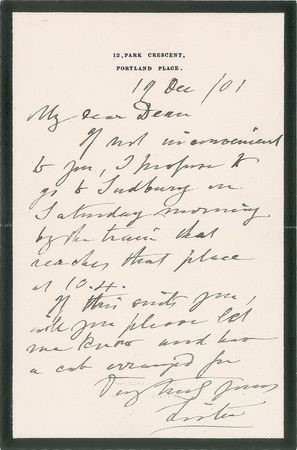 12, PARK CRESCENT,
PORTLAND PLACE.
19 Dec /01
My dear Dean
If not inconvenient
to you, I propose to
go to Sudbury on
Saturday morning
by the train that
reaches that place
at 10.4.
If this suits you,
will you please let
me know and have
a cab arranged for
Very truly yours
Lister